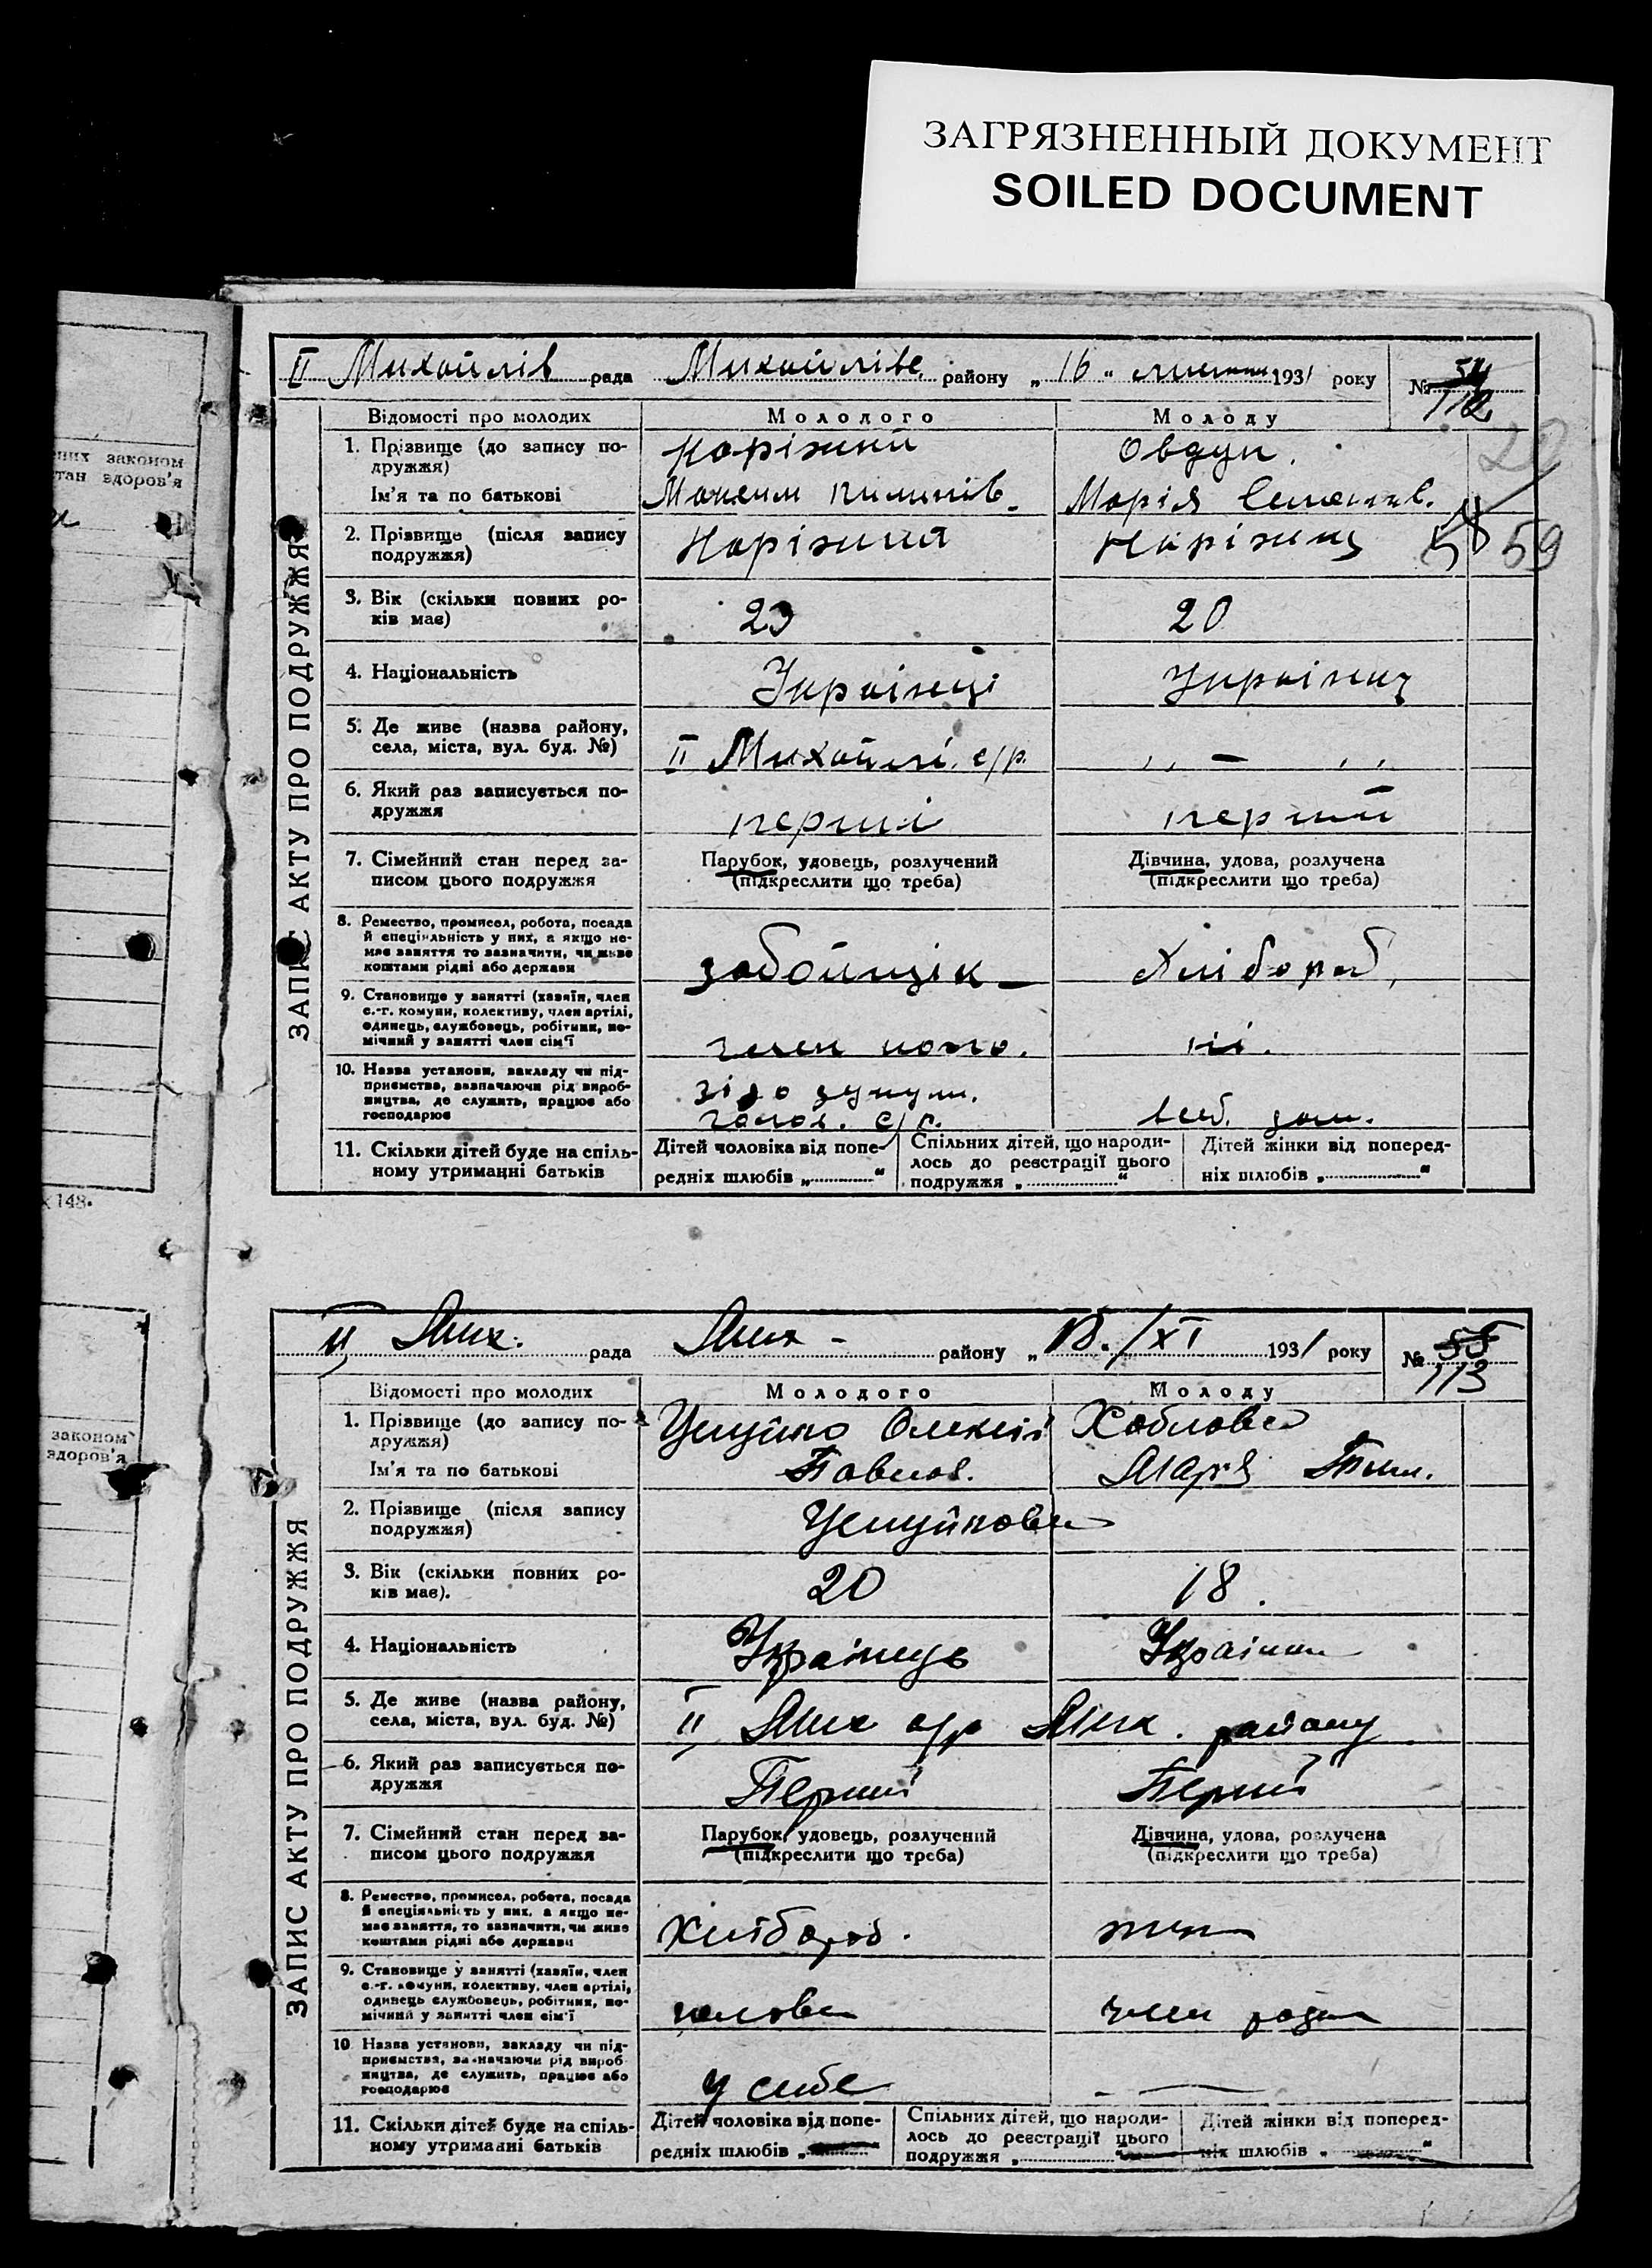 ЗАГРЯЗНЕННЫЙ ДОКУМЕНТ
SOILED DOCUMENT
них законом
тан здоров'я
к 148.
законом
здоров'я
ЗАПИС АКТУ ПРО ПОДРУЖЖЯ
II Михайлів рада Михайлівс. району „16“ 1931 року № 54
112
Відомості про молодих Молодого Молоду
1. Прізвище (до запису по-
дружжя) Наріжний Овдун.
Ім'я та по батькові Марія
2. Прізвище (після запису
подружжя) 58 59
3. Вік (скільки повних ро-
ків має) 23 20
4. Національність Українці
5. Де живе (назва району,
села, міста, вул. буд. №) II Михайлі. с/р. „ — „
6. Який раз записується по-
дружжя перший
7. Сімейний стан перед за-
писом цього подружжя
Парубок, удовець, розлучений
(підкреслити що треба)
Дівчина, удова, розлучена
(підкреслити що треба)
8. Ремество, промисел, робота, посада
й спеціяльність у них, а якщо не-
має заняття то зазначити, чи живе
коштами рідні або держави
забойщік Хлібороб,
9. Становище у занятті (хазяїн, член
с.-г. комуни, колективу, член артілі,
одинець, службовець, робітник, по-
мічний у занятті член сім'ї
член
10. Назва установи, закладу чи під-
приємства, зазначаючи рід вироб-
ництва, де служить, працює або
господарює
с/г.
11. Скільки дітей буде на спіль-
ному утриманні батьків
Дітей чоловіка від попе-
редніх шлюбів „ “
Спільних дітей, що народи-
лось до реєстрації цього
подружжя „ “
Дітей жінки від поперед-
ніх шлюбів „ “
ЗАПИС АКТУ ПРО ПОДРУЖЖЯ
II Мих. рада Мих - району „ 18./XI 1931 року № 55
113
Відомості про молодих Молодого Молоду
1. Прізвище (до запису по-
дружжя) Олексій
Ім'я та по батькові Павлов. Марія
2. Прізвище (після запису
подружжя)
3. Вік (скільки повних ро-
ків має). 20 18.
4. Національність Українець Українка
5. Де живе (назва району,
села, міста, вул. буд. №) II Мих с/р Мих. району
6. Який раз записується по-
дружжя Перший Перший
7. Сімейний стан перед за-
писом цього подружжя
Парубок, удовець, розлучений
(підкреслити що треба)
Дівчина, удова, розлучена
(підкреслити що треба)
8. Ремество, промисел, робота, посада
й спеціяльність у них, а якщо не-
має заняття, то зазначити, чи живе
коштами рідні або держави
Хлібороб.
9. Становище у занятті (хазяїн, член
с.-г. комуни, колективу, член артілі,
одинець службовець, робітник, по-
мічний у занятті член сім'ї
голова член
10 Назва установи, закладу чи під-
приємства, зазначаючи рід вироб-
ництва, де служить, працює або
господарює
у себе —
11. Скільки дітей буде на спіль-
ному утриманні батьків
Дітей чоловіка від попе-
редніх шлюбів „ “
Спільних дітей, що народи-
лось до реєстрації цього
подружжя „ “
Дітей жінки від поперед-
ніх шлюбів „ “